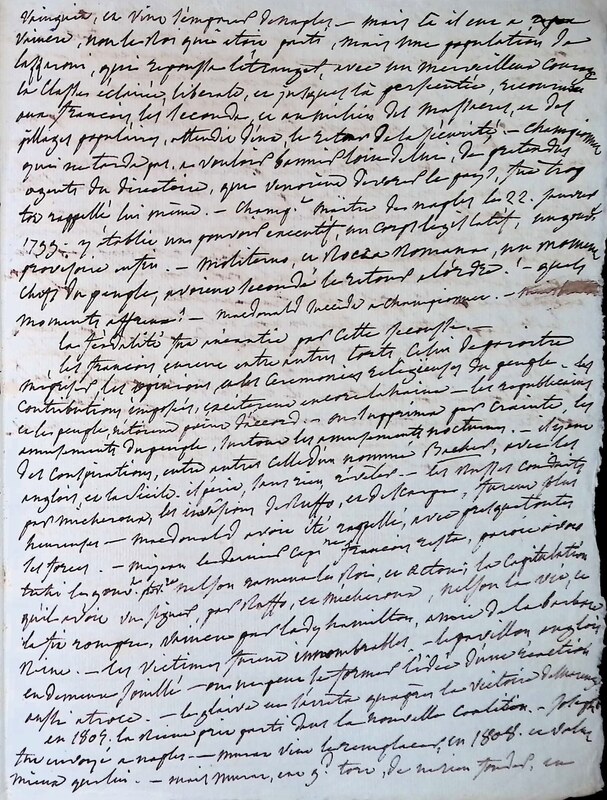 vainqueur, et vint s'emparer de Naples — mais là il eut à
vaincre, non le Roi qui etoit parti, mais une population de
Lazzaroni, qui repoussa l'etranger, avec un merveilleux courage
la classe éclairée, liberale, et jusques là persecutée, recourut
aux francois, les seconda, et au milieu des massacres, et des
pillages populaires, attendit d'eux le retour de la sécurité. — Championnet
qui ne tarda pas, a vouloir bannir loin de lui, de pretendus
agents du directoire, qui venoient devorer le pays, fut trop
tot rappellé lui même. — Champ.t maitre de naples le 22. janvier
1799. y établit un pouvoir executif, un corps legislatif, un gouv.
provisoire enfin. — Moliterno, et Rocca Romana, un moment
chefs du peuple, avoient secondé le retour a l'ordre. — quels
moments affreux! — macdonald succéda a championnet. —
la feodalité fut anéantie par cette secousse —
les francois eurent entre autres torts celui de paroitre
mépriser les opinions et les ceremonies religieuses du peuple — les
contributions imposées, exciterent encore la haine — les republicains
et les peuples n'etoient point d'accord. — on supprima par crainte les
amusements du peuple, surtout les amusements nocturnes. — il y eut
des conspirations, entre autres celle d'un nommé Backer, avec les
anglois, et la Sicile. il périt, sans rien révéler. — les Russes conduits
par Micheroux, les invasions de Ruffo, et des campagnes, furent plus
heureuses — macdonald avoit été rappellé, avec presque toutes
ses forces. — mejean le dernier cap.ne francois resta, parut avoir
trahi le gouv.t — nelson ramena le Roi, et Acton; la capitulation
qu'il avoit vu signer, par Ruffo, et micheroux, nelson la vit, et
la fit rompre, vaincu par lady hamilton, amie de la barbare
Reine. — les victimes furent innombrables. — le pavillon anglois
en demeura souillé — on ne peut se former l'idée d'une reaction
aussi atroce. — le glaive ne s'arreta qu'après la victoire de Marengo
en 1805, la Reine prit parti dans la nouvelle coalition. — Joseph
fut envoyé a naples — murat vint le remplacer, en 1808. et valut
mieux que lui. — mais murat, eut g.d tort, de ne rien fonder, en